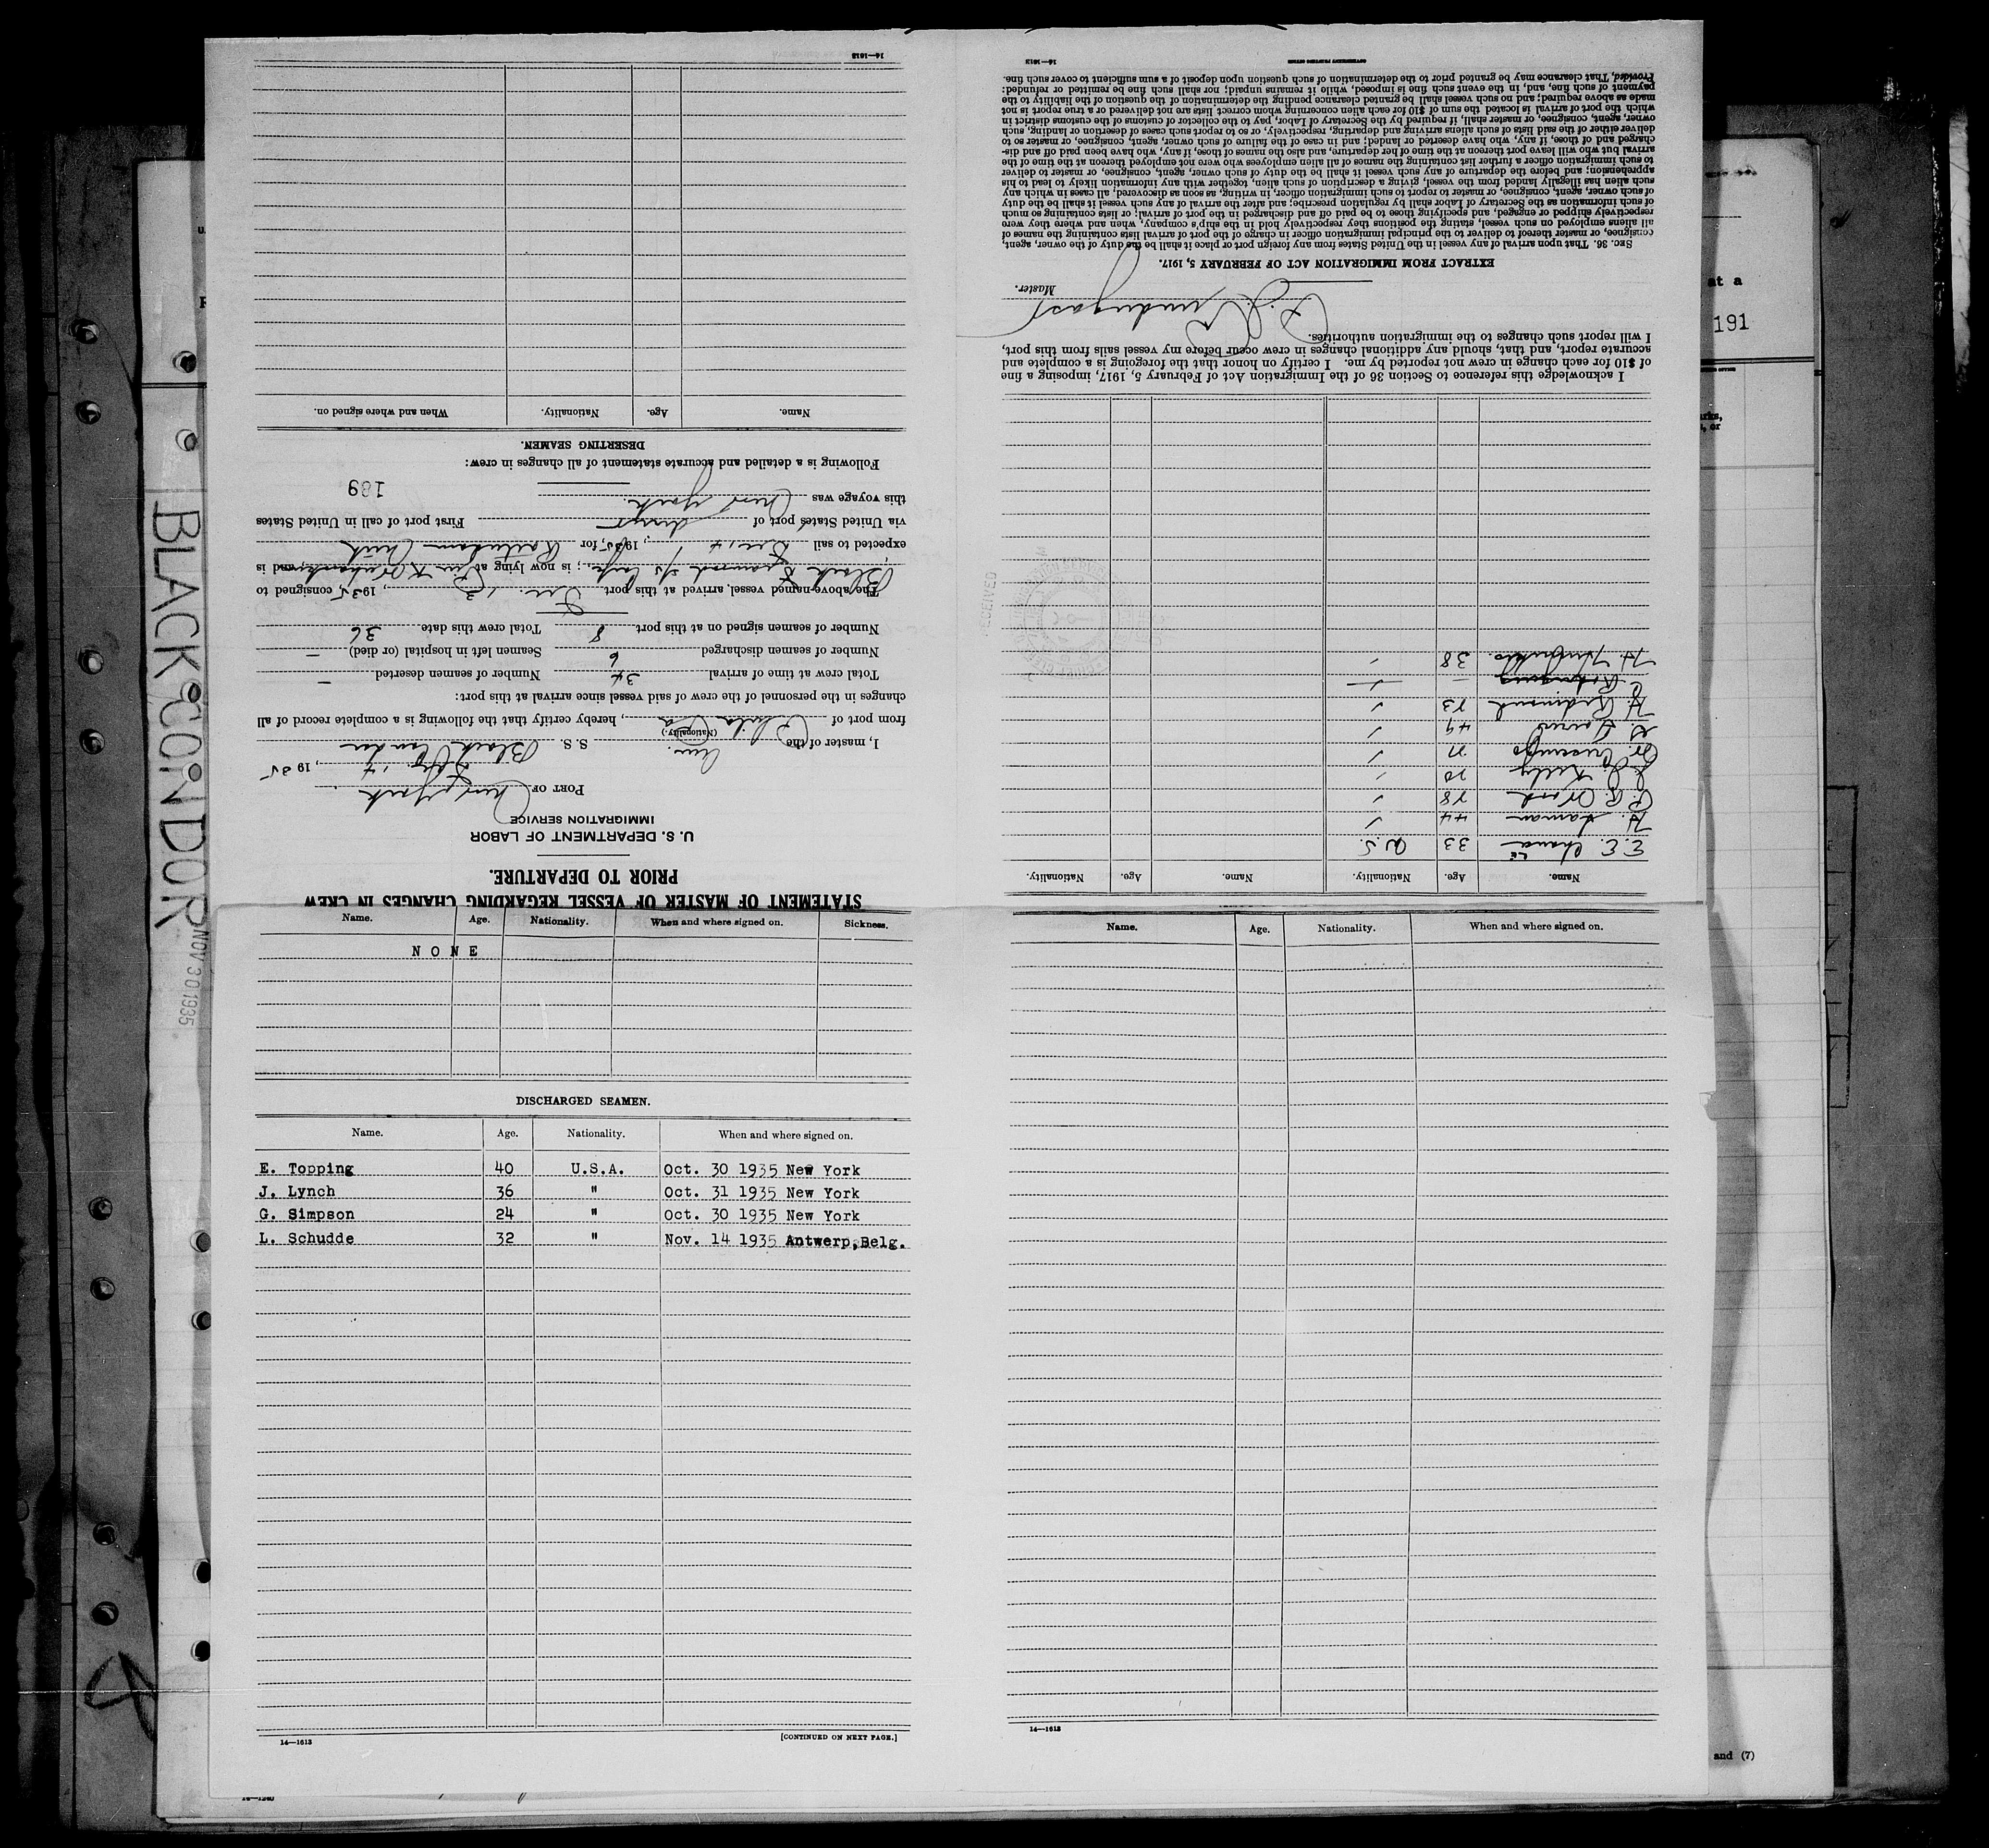 STATEMENT OF MASTER OF VESSEL REGARDING CHANGES IN CREW
PRIOR TO DEPARTURE.
U. S. DEPARTMENT OF LABOR
IMMIGRATION SERVICE
PORT OF New York
, 1935
I, master of the Am. S. S. Black Condor
(Nationality.)
from port of Phila Pa, hereby certify that the following is a complete record of all
changes in the personnel of the crew of said vessel since arrival at this port:
Total crew at time of arrival 34 Number of seamen deserted —
Number of seamen discharged 6 Seamen left in hospital (or died) —
Number of seamen signed on at this port 8 Total crew this date 36
The above-named vessel, arrived at this port Dec. , 1935, consigned to
Black Diamond ; is now lying at , and is
expected to sail Dec. 14, 1935, for Rotterdam
via United States port of direct First port of call in United States
this voyage was New York
189
Following is a detailed and accurate statement of all changes in crew:
DESERTING SEAMEN.
Name. Age. Nationality. When and where signed on.
14—1613
Name. Age. Nationality. Name. Age. Nationality.
E. E. 33 U.S.
H. 44 "
28 "
J. Kelly "
49 "
H. "
H. 38 "
I acknowledge this reference to Section 36 of the Immigration Act of February 5, 1917, imposing a fine
of $10 for each change in crew not reported by me. I certify on honor that the foregoing is a complete and
accurate report, and that, should any additional changes in crew occur before my vessel sails from this port,
I will report such changes to the immigration authorities.
Master.
EXTRACT FROM IMMIGRATION ACT OF FEBRUARY 5, 1917.
SEC. 36. That upon arrival of any vessel in the United States from any foreign port or place it shall be the duty of the owner, agent,
consignee, or master thereof to deliver to the principal immigration officer in charge of the port of arrival lists containing the names of
all aliens employed on such vessel, stating the positions they respectively hold in the ship's company, when and where they were
respectively shipped or engaged, and specifying those to be paid off and discharged in the port of arrival; or lists containing so much
of such information as the Secretary of Labor shall by regulation prescribe; and after the arrival of any such vessel it shall be the duty
of such owner, agent, consignee, or master to report to such immigration officer, in writing, as soon as discovered, all cases in which any
such alien has illegally landed from the vessel, giving a description of such alien, together with any information likely to lead to his
apprehension; and before the departure of any such vessel it shall be the duty of such owner, agent, consignee, or master to deliver
to such immigration officer a further list containing the names of all alien employees who were not employed thereon at the time of the
arrival but who will leave port thereon at the time of her departure, and also the names of those, if any, who have been paid off and dis-
charged and of those, if any, who have deserted or landed; and in case of the failure of such owner, agent, consignee, or master so to
deliver either of the said lists of such aliens arriving and departing, respectively, or so to report such cases of desertion or landing, such
owner, agent, consignee, or master shall, if required by the Secretary of Labor, pay to the collector of customs of the customs district in
which the port of arrival is located the sum of $10 for each alien concerning whom correct lists are not delivered or a true report is not
made as above required; and no such vessel shall be granted clearance pending the determination of the question of the liability to the
payment of such fine, and, in the event such fine is imposed, while it remains unpaid; nor shall such fine be remitted or refunded:
Provided, That clearance may be granted prior to the determination of such question upon deposit of a sum sufficient to cover such fine.
GOVERNMENT PRINTING OFFICE 14—1613
RECEIVED
BLACK CONDOR
NOV 30 1935
at a
191
and (7)
Name. Age. Nationality. When and where signed on. Sickness.
NONE
DISCHARGED SEAMEN.
Name. Age. Nationality. When and where signed on.
E. Topping 40 U.S.A. Oct. 30 1935 New York
J. Lynch 36 " Oct. 31 1935 New York
G. Simpson 24 " Oct. 30 1935 New York
L. Schudde 32 " Nov. 14 1935 Antwerp,Belg.
14—1613 [CONTINUED ON NEXT PAGE.]
Name. Age. Nationality. When and where signed on.
14—1613